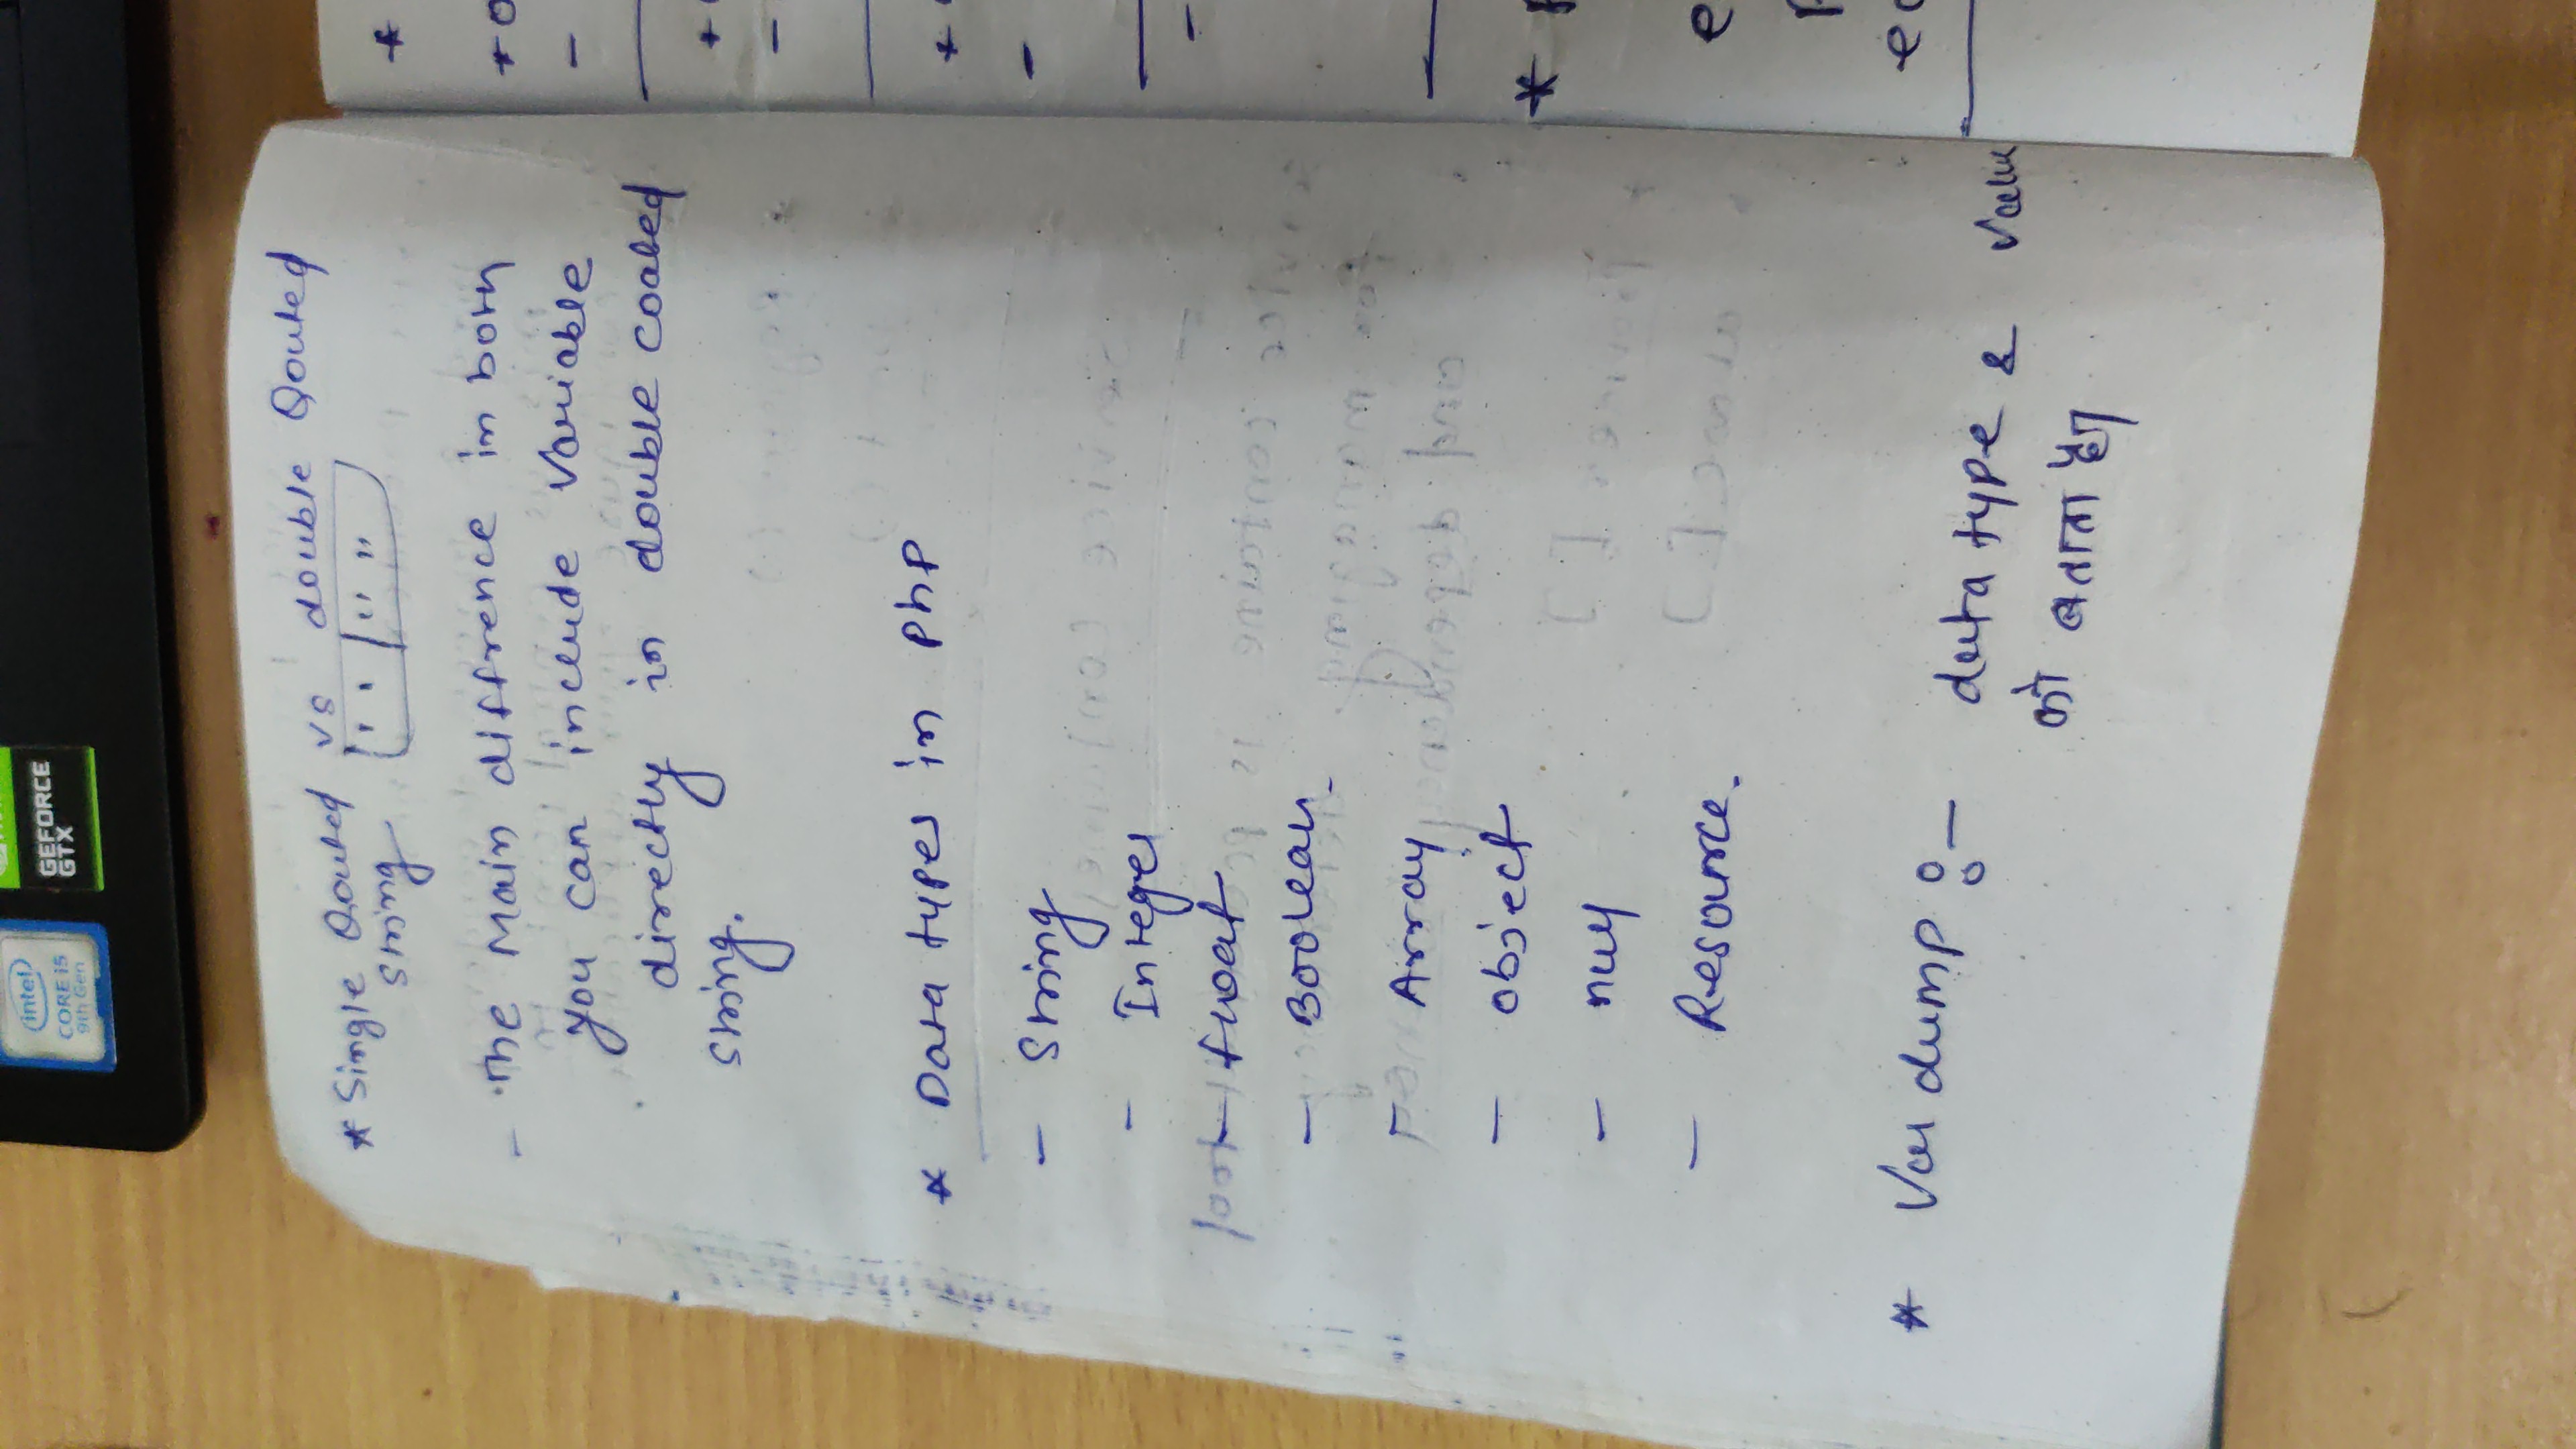 intel
CORE i5
9th Gen
GEFORCE
GTX
* Single Qouted vs double Qouted
string ' ' " "
- The Main diffrence in both
you can include Variable
directly in double coated
string.
* Data types in php
- String
- Integer
- float
- Boolean
- Array
- object
- null
- Resource.
* Var dump :- data type & value
को बताता है।